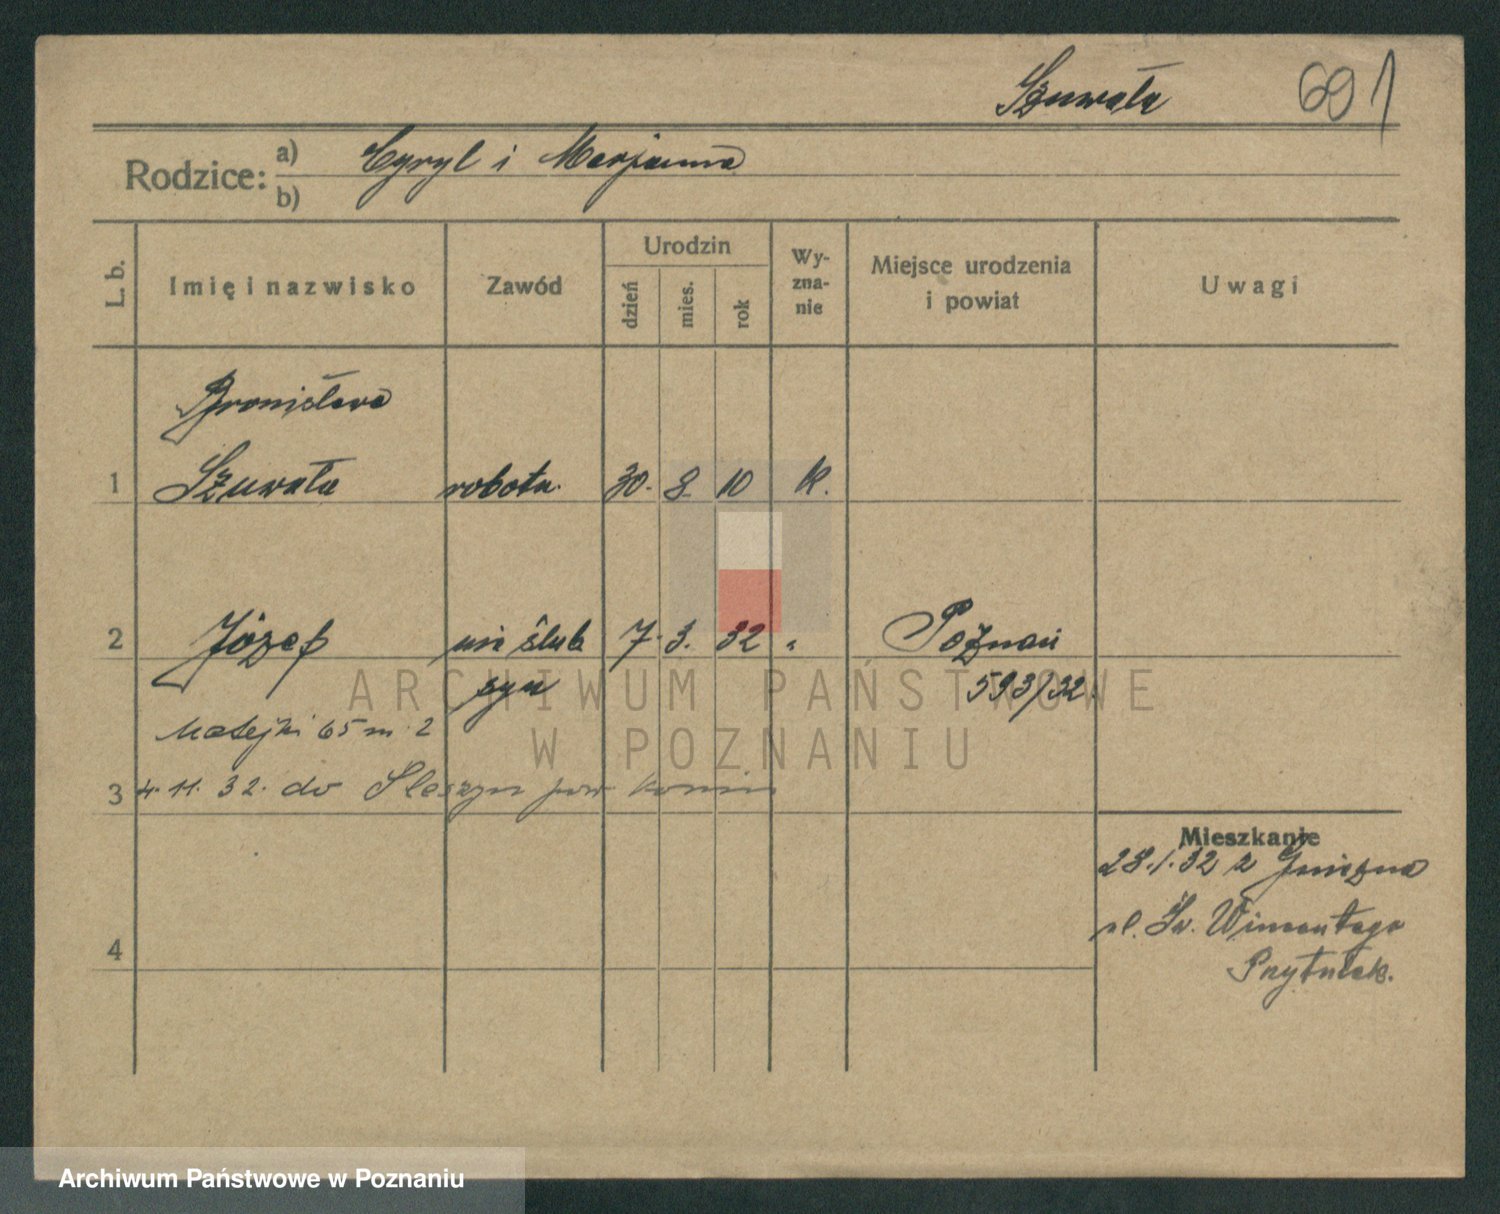 Szuwała 691
Rodzice: a) Cyryl i Marjanna
b)
L. b. Imię i nazwisko Zawód Urodzin dzień mies. rok Wy-zna-nie Miejsce urodzenia i powiat Uwagi
Bronisława
1 Szuwała robotn. 30. 8. 10 k.
2 Józef nie ślub 7. 3. 32 " Poznań
syn 593/32
Matejki 65 m. 2
3 4. 11. 32. do Sleszyn pow. Konin
Mieszkanie
28.1.32 z Gniezna
4 pl. Św. Wincentego
Przytułek.
ARCHIWUM PAŃSTWOWE
W POZNANIU
Archiwum Państwowe w Poznaniu